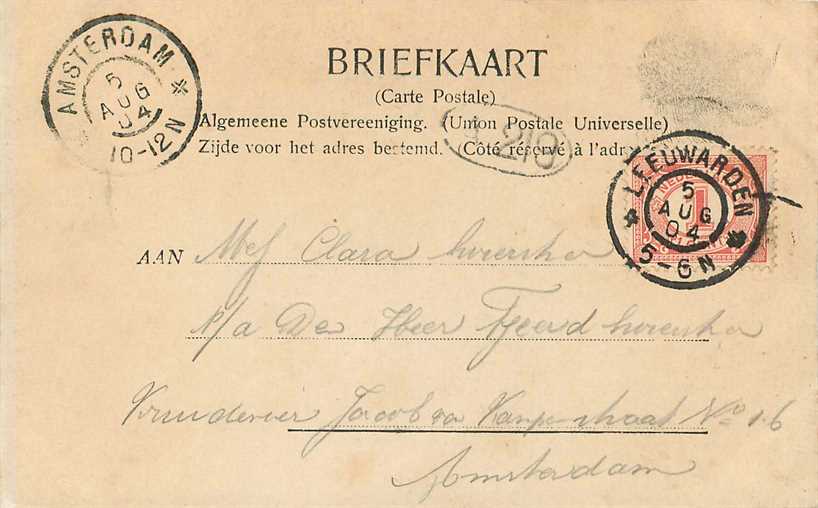 AMSTERDAM
5
AUG
04
10-12N
BRIEFKAART
(Carte Postale)
Algemeene Postvereeniging. (Union Postale Universelle)
Zijde voor het adres bestemd. (Côté réservé à l'adr
218
LEEUWARDEN
5
AUG
04
5-6N
NED
1
AAN Mej Clara
p/a Den Heer
Jacob van Campenstraat No 16
Amsterdam